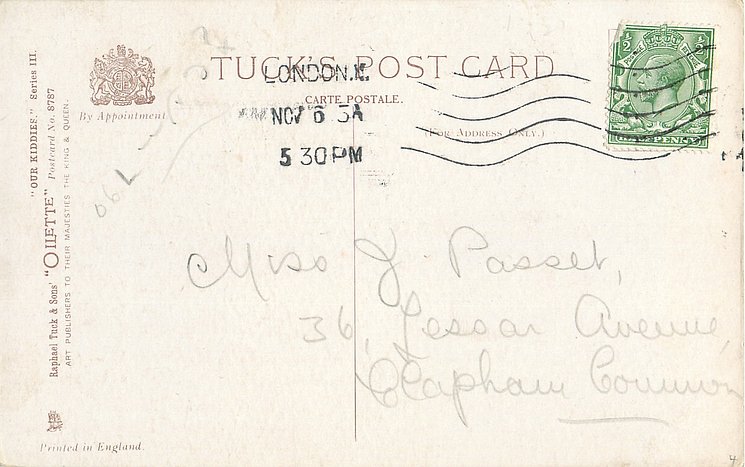 TUCK'S POST CARD
CARTE POSTALE.
(FOR ADDRESS ONLY.)
By Appointment
"OUR KIDDIES." Series III.
Raphael Tuck & Sons' "OILETTE" Postcard No. 8787
ART PUBLISHERS TO THEIR MAJESTIES THE KING & QUEEN.
Printed in England.
LONDON.N.
NOV 6 
5 30PM
½ ½
Miss J. Passet,
36, Lessar Avenue,
Clapham Common
4